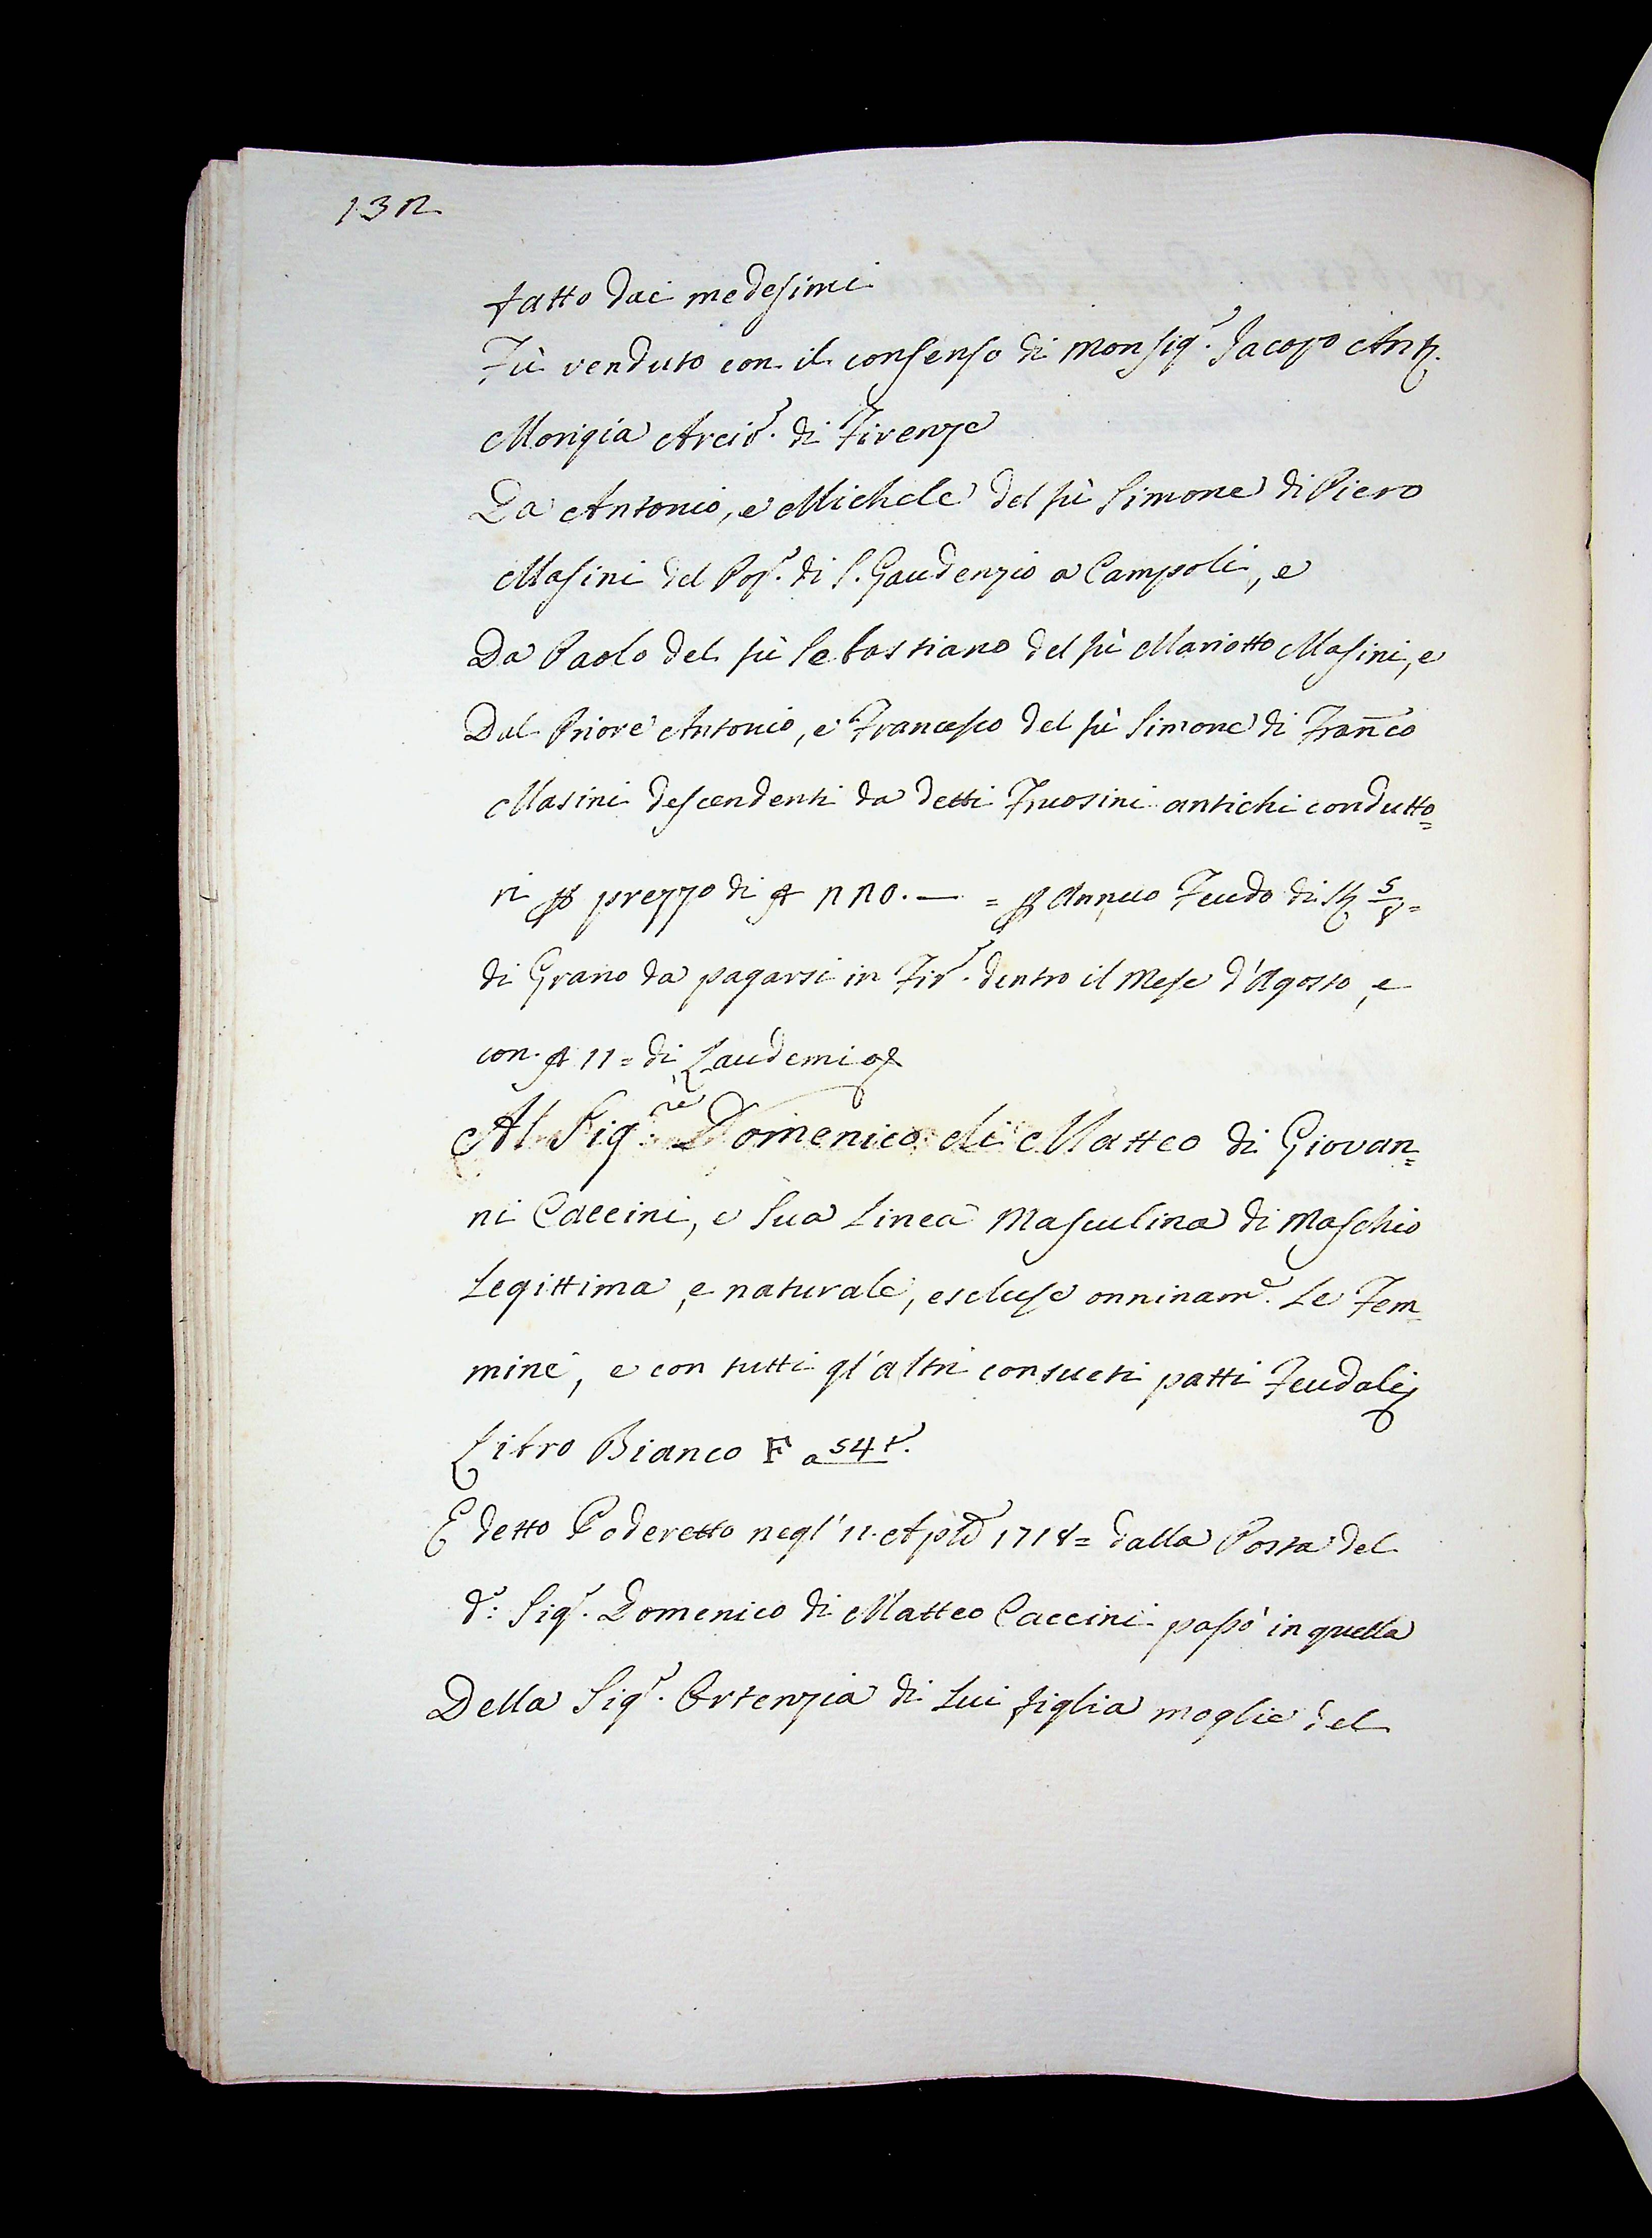 132
fatto dai medesimi
Fù venduto con il consenso di Monsig.r Jacopo Ant.o
Morigia Arciv.o di Firenze
Da Antonio, e Michele del fù Simone di Piero
Masini del Pop.o di S. Gaudenzio a Campoli, e
Da Paolo del fù Sebastiano del fù Mariotto Masini, e
Dal Priore Antonio, e Francesco del fù Simone di Fran̄co
Masini descendenti da detti Fruosini antichi condutto=
ri p prezzo di 220. — = p Annuo Feudo di St.a 5/8=
di Grano da pagarsi in Fir.e dentro il Mese d'Agosto, e
con 11= di Laudemio
Al Sig.re Domenico di Matteo di Giovan=
ni Caccini, e Sua Linea Masculina di Maschio
Legittima, e naturale, escluse onninam.e Le Fem=
mine, e con tutti gl'altri consueti patti Feudali
Libro Bianco F a 54 t.
E detto Poderetto negl'11. Aple 1718= dalla Posta del
d.o: Sig.r Domenico di Matteo Caccini passò in quella
Della Sig.a Ortenzia di Lui figlia moglie del